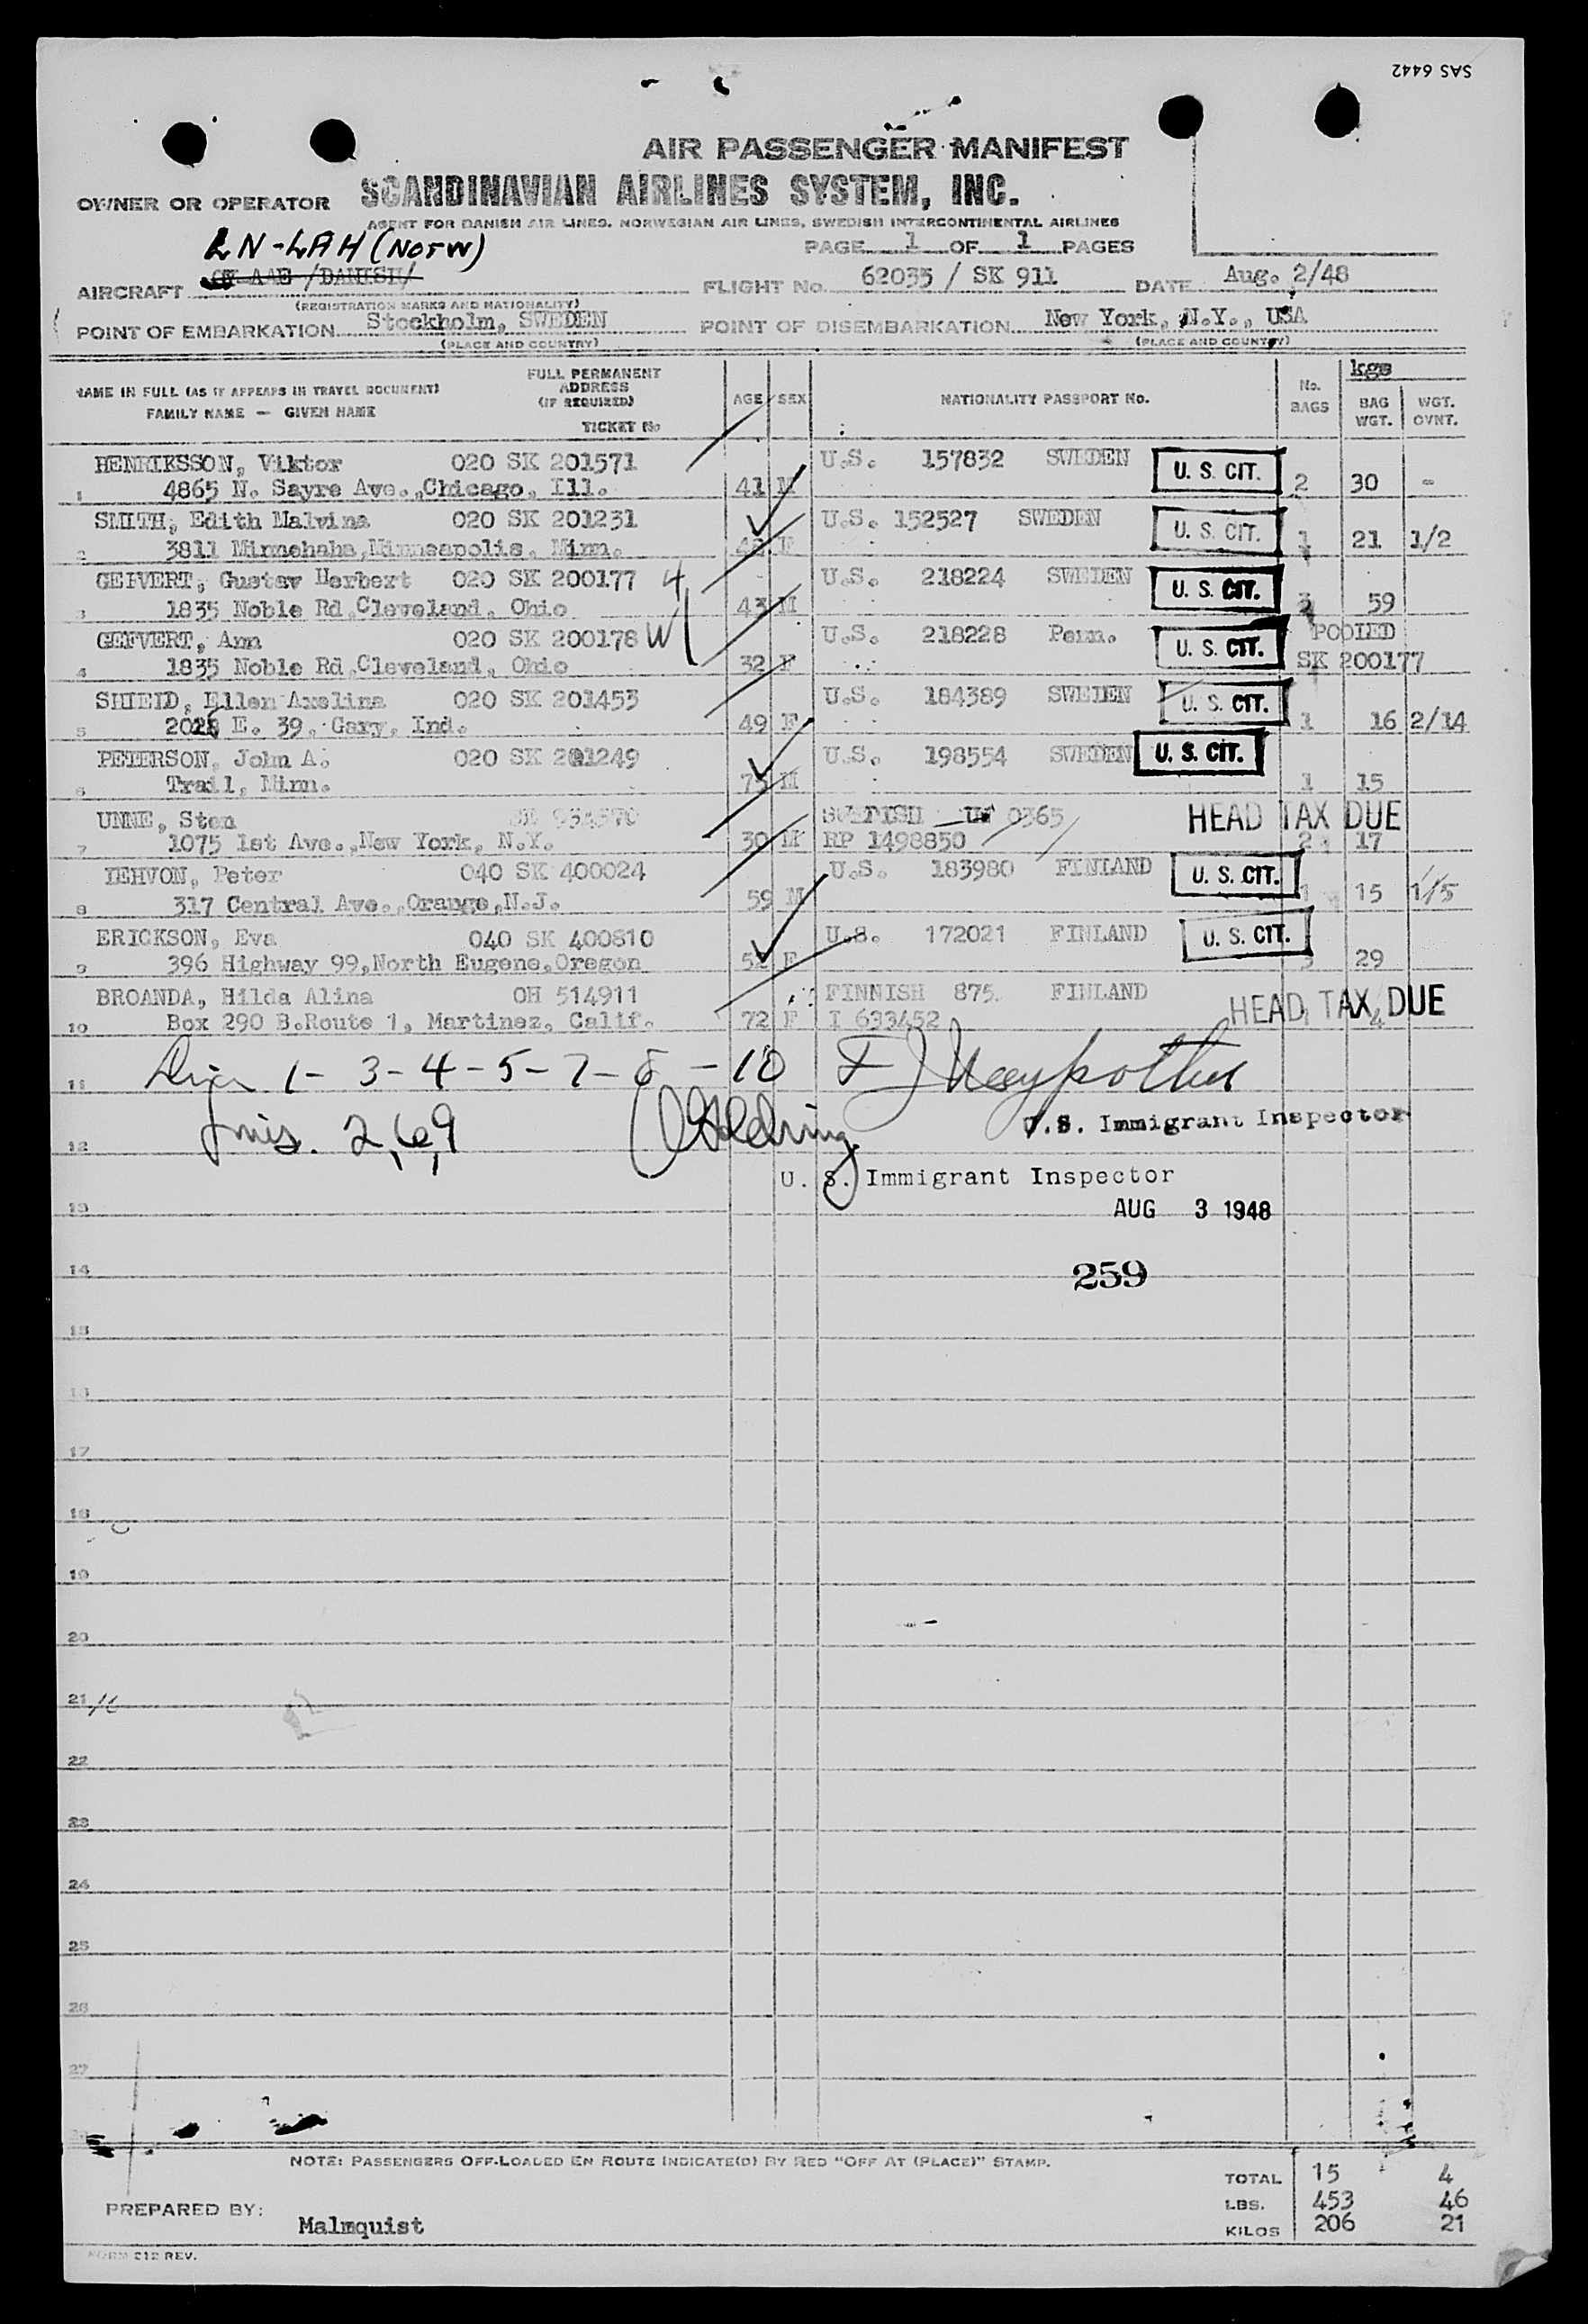 SAS 6442
AIR PASSENGER MANIFEST
OWNER OR OPERATOR SCANDINAVIAN AIRLINES SYSTEM, INC.
AGENT FOR DANISH AIR LINES, NORWEGIAN AIR LINES, SWEDISH INTERCONTINENTAL AIRLINES
LN-LAH (NORW)
PAGE 1 OF 1 PAGES
AIRCRAFT /DANISH/ FLIGHT No. 62035 / SK 911 DATE Aug. 2/48
(REGISTRATION MARKS AND NATIONALITY)
POINT OF EMBARKATION Stockholm, SWEDEN POINT OF DISEMBARKATION New York, N.Y., USA
(PLACE AND COUNTRY) (PLACE AND COUNTRY)
NAME IN FULL (AS IT APPEARS IN TRAVEL DOCUMENT) FULL PERMANENT ADDRESS (IF REQUIRED) AGE SEX NATIONALITY PASSPORT No. No. BAGS kgs BAG WGT. WGT. OVNT.
FAMILY NAME — GIVEN NAME TICKET No
HENRIKSSON, Viktor 020 SK 201571 U.S. 157832 SWEDEN U. S. CIT.
1 4865 N. Sayre Ave.,Chicago, Ill. 41 M 2 30 -
SMITH, Edith Malvina 020 SK 201231 U.S. 152527 SWEDEN U. S. CIT.
2 3811 Minnehaha,Minneapolis, Minn. F 1 21 1/2
GEFVERT, Gustav Herbert 020 SK 200177 4 U.S. 218224 SWEDEN U. S. CIT.
3 1835 Noble Rd,Cleveland, Ohio 43 M 3 59
GEFVERT, Ann 020 SK 200178 W U.S. 218228 Penn. U. S. CIT. POOLED
4 1835 Noble Rd,Cleveland, Ohio 32 F SK 200177
SHIELD, Ellen Axelina 020 SK 201453 U.S. 184389 SWEDEN U. S. CIT.
5 E. 39, Gary, Ind. 49 F 1 16 2/14
PETERSON, John A. 020 SK 201249 U.S. 198554 SWEDEN U. S. CIT.
6 Trail, Minn. 75 M 1 15
UNNE, Sten SWEDISH 0365 HEAD TAX DUE
7 1075 1st Ave.,New York, N.Y. 30 M RP 1498850 2 17
LEHVON, Peter 040 SK 400024 U.S. 183980 FINLAND U. S. CIT.
8 317 Central Ave.,Orange,N.J. 59 M 1 15 1/5
ERICKSON, Eva 040 SK 400810 U.S. 172021 FINLAND U. S. CIT.
9 396 Highway 99,North Eugene,Oregon F 3 29
BROANDA, Hilda Alina OH 514911 FINNISH 875. FINLAND HEAD TAX DUE
10 Box 290 B.Route 1, Martinez, Calif. 72 F I 633452 4
11 1- 3-4-5-7-8-10
U.S. Immigrant Inspector
12 2,6,9
U. S. Immigrant Inspector
13 AUG 3 1948
14 259
15
16
17
18
19
20
21
22
23
24
25
26
27
NOTE: PASSENGERS OFF-LOADED EN ROUTE INDICATE(D) BY RED "OFF AT (PLACE)" STAMP.
TOTAL 15 4
PREPARED BY: LBS. 453 46
Malmquist KILOS 206 21
FORM 212 REV.